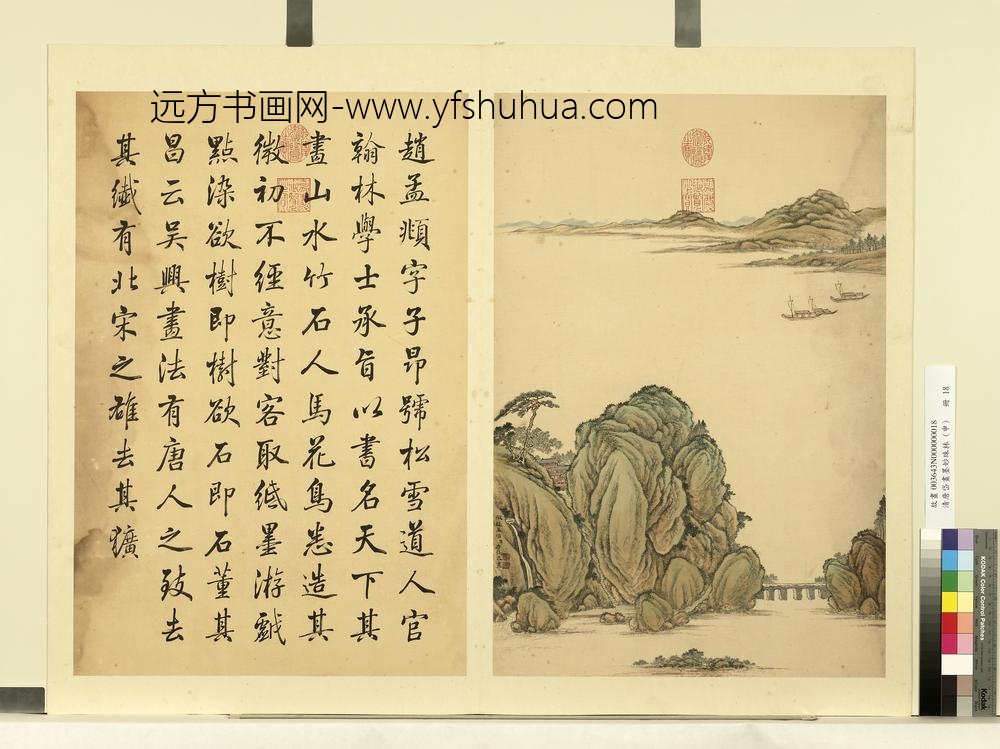 远方书画网-www.yfshuhua.com
趙孟頫字子昂號松雪道人官
翰林學士承旨以書名天下其
畫山水竹石人馬花鳥悉造其
微初不經意對客取紙墨游戲
點染欲樹即樹欲石即石董其
昌云吴興畫法有唐人之致去
其纖有北宋之雄去其獷
故畫003643N000000018
清唐岱畫墨妙珠林（申） 冊 18
KODAK Color Control Patches
Kodak